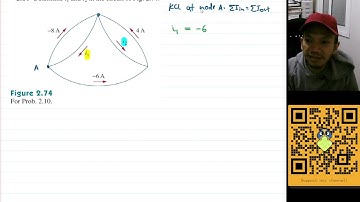 KCL at node A. ΣIin = ΣIout
-8 A
4 A
i₁ = -6
i₂
i₁
A
-6 A
Figure 2.74
For Prob. 2.10.
Support my channel!